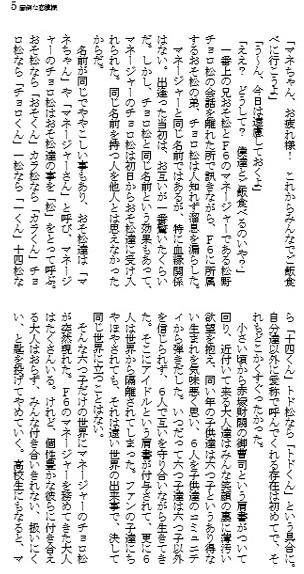 5
「マネちゃん、お疲れ様！　これからみんなでご飯食
べに行こうよ」
「う～ん、今日は遠慮しておくよ」
「えぇ？　どうして？　僕達とご飯食べるのいや？」
　一番上の兄おそ松とＦ６のマネージャーである松野
チョロ松の会話を離れた所で訊きながら、Ｆ６に所属
するおそ松の弟、チョロ松は人知れず溜息を漏らした。
　マネージャーと同じ名前ではあるが、特に血縁関係
はない。出逢った当初は、お互いが一番驚いたくらい
だ。しかし、チョロ松と同じ名前という効果もあって、
マネージャーのチョロ松は初日からおそ松達に受け入
れられた。同じ名前を持つ人を他人とは思えなかった
からだ。
　名前が同じでややこしい事もあり、おそ松達は「マ
ネちゃん」や「マネージャーさん」と呼び、マネージ
ャーのチョロ松はおそ松達の事を「松」をとって呼ぶ。
おそ松なら「おそくん」カラ松なら「カラくん」チョ
ロ松なら「チョロくん」一松なら「一くん」十四松な
ら「十四くん」トド松なら「トドくん」という具合に。
自分達以外に愛称で呼んでくれる存在は初めてで、そ
れもどこかくすぐったかった。
　小さい頃から赤塚財閥の御曹司という肩書がついて
回り、近付いて来る大人達はみんな笑顔の裏に薄汚い
欲望を抱え、同い年の子供達は六つ子というあり得な
い生まれを気味悪く思い、６人を子供達のコミュニテ
ィから弾きだした。いつだって六つ子達は六つ子以外
を信じられず、６人で互いを守り合いながら生きてき
た。そこにアイドルという肩書が付与されて、更に６
人は世界から隔離されてしまった。ファンの子達にち
やほやされても、それは遠い世界の出来事で、決して
同じ世界に立つことはない。
　そんな六つ子だけの世界にマネージャーのチョロ松
が突然現れた。Ｆ６のマネージャーを務めてきた大人
はたくさんいる。けれど、個性豊かな彼らに付き合え
る大人はおらず、みんな付き合いきれない、扱いにく
い、と匙を投げてやめていく。高校生にもなると、マ